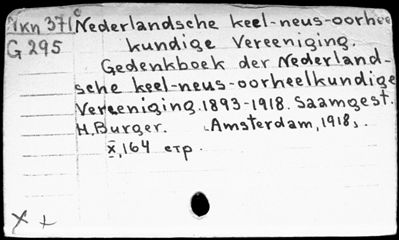 Nederlandsche keel-neus-oorhee
G 295
kundige Vereeniging.
Gedenkboek der Nederland-
sche keel-neus-oorheelkundige
Vereeniging. 1893-1918. Saamgest.
H. Burger. Amsterdam, 1918.
X, 164 стр.
X +